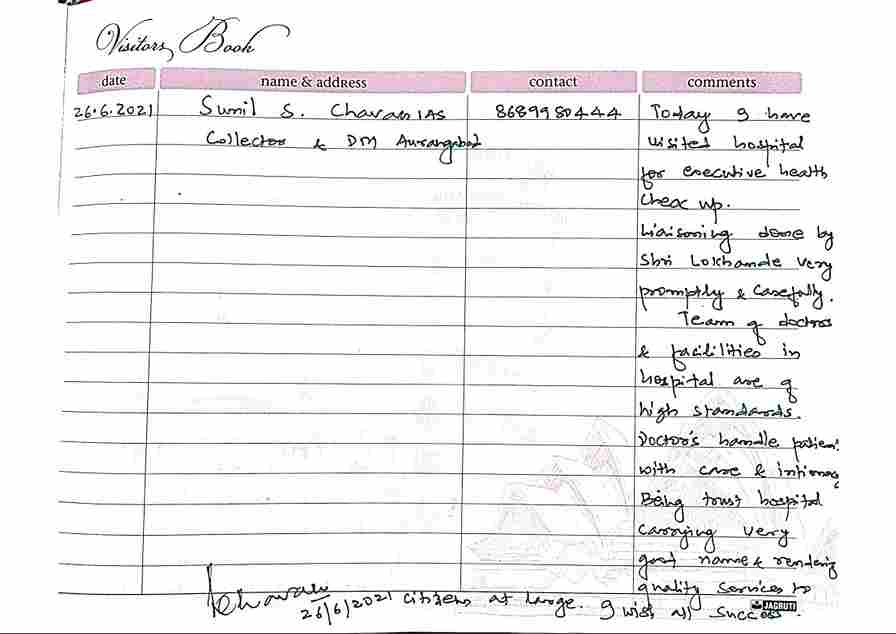 Visitors Book
date name & address contact comments
26.6.2021 Sunil S. Chavan IAS 8689980444 Today I have
Collector & DM Aurangabad visited hospital
for executive health
check up.
Liaisoning done by
Shri Lokhande very
promptly & carefully.
Team of doctors
& facilities in
hospital are of
high standards.
Doctor's handle patient
with care &
Being trust hospital
carrying very
good name & rendering
quality services to
26/6/2021 citizens at large. I wish all success.
JAGRUTI